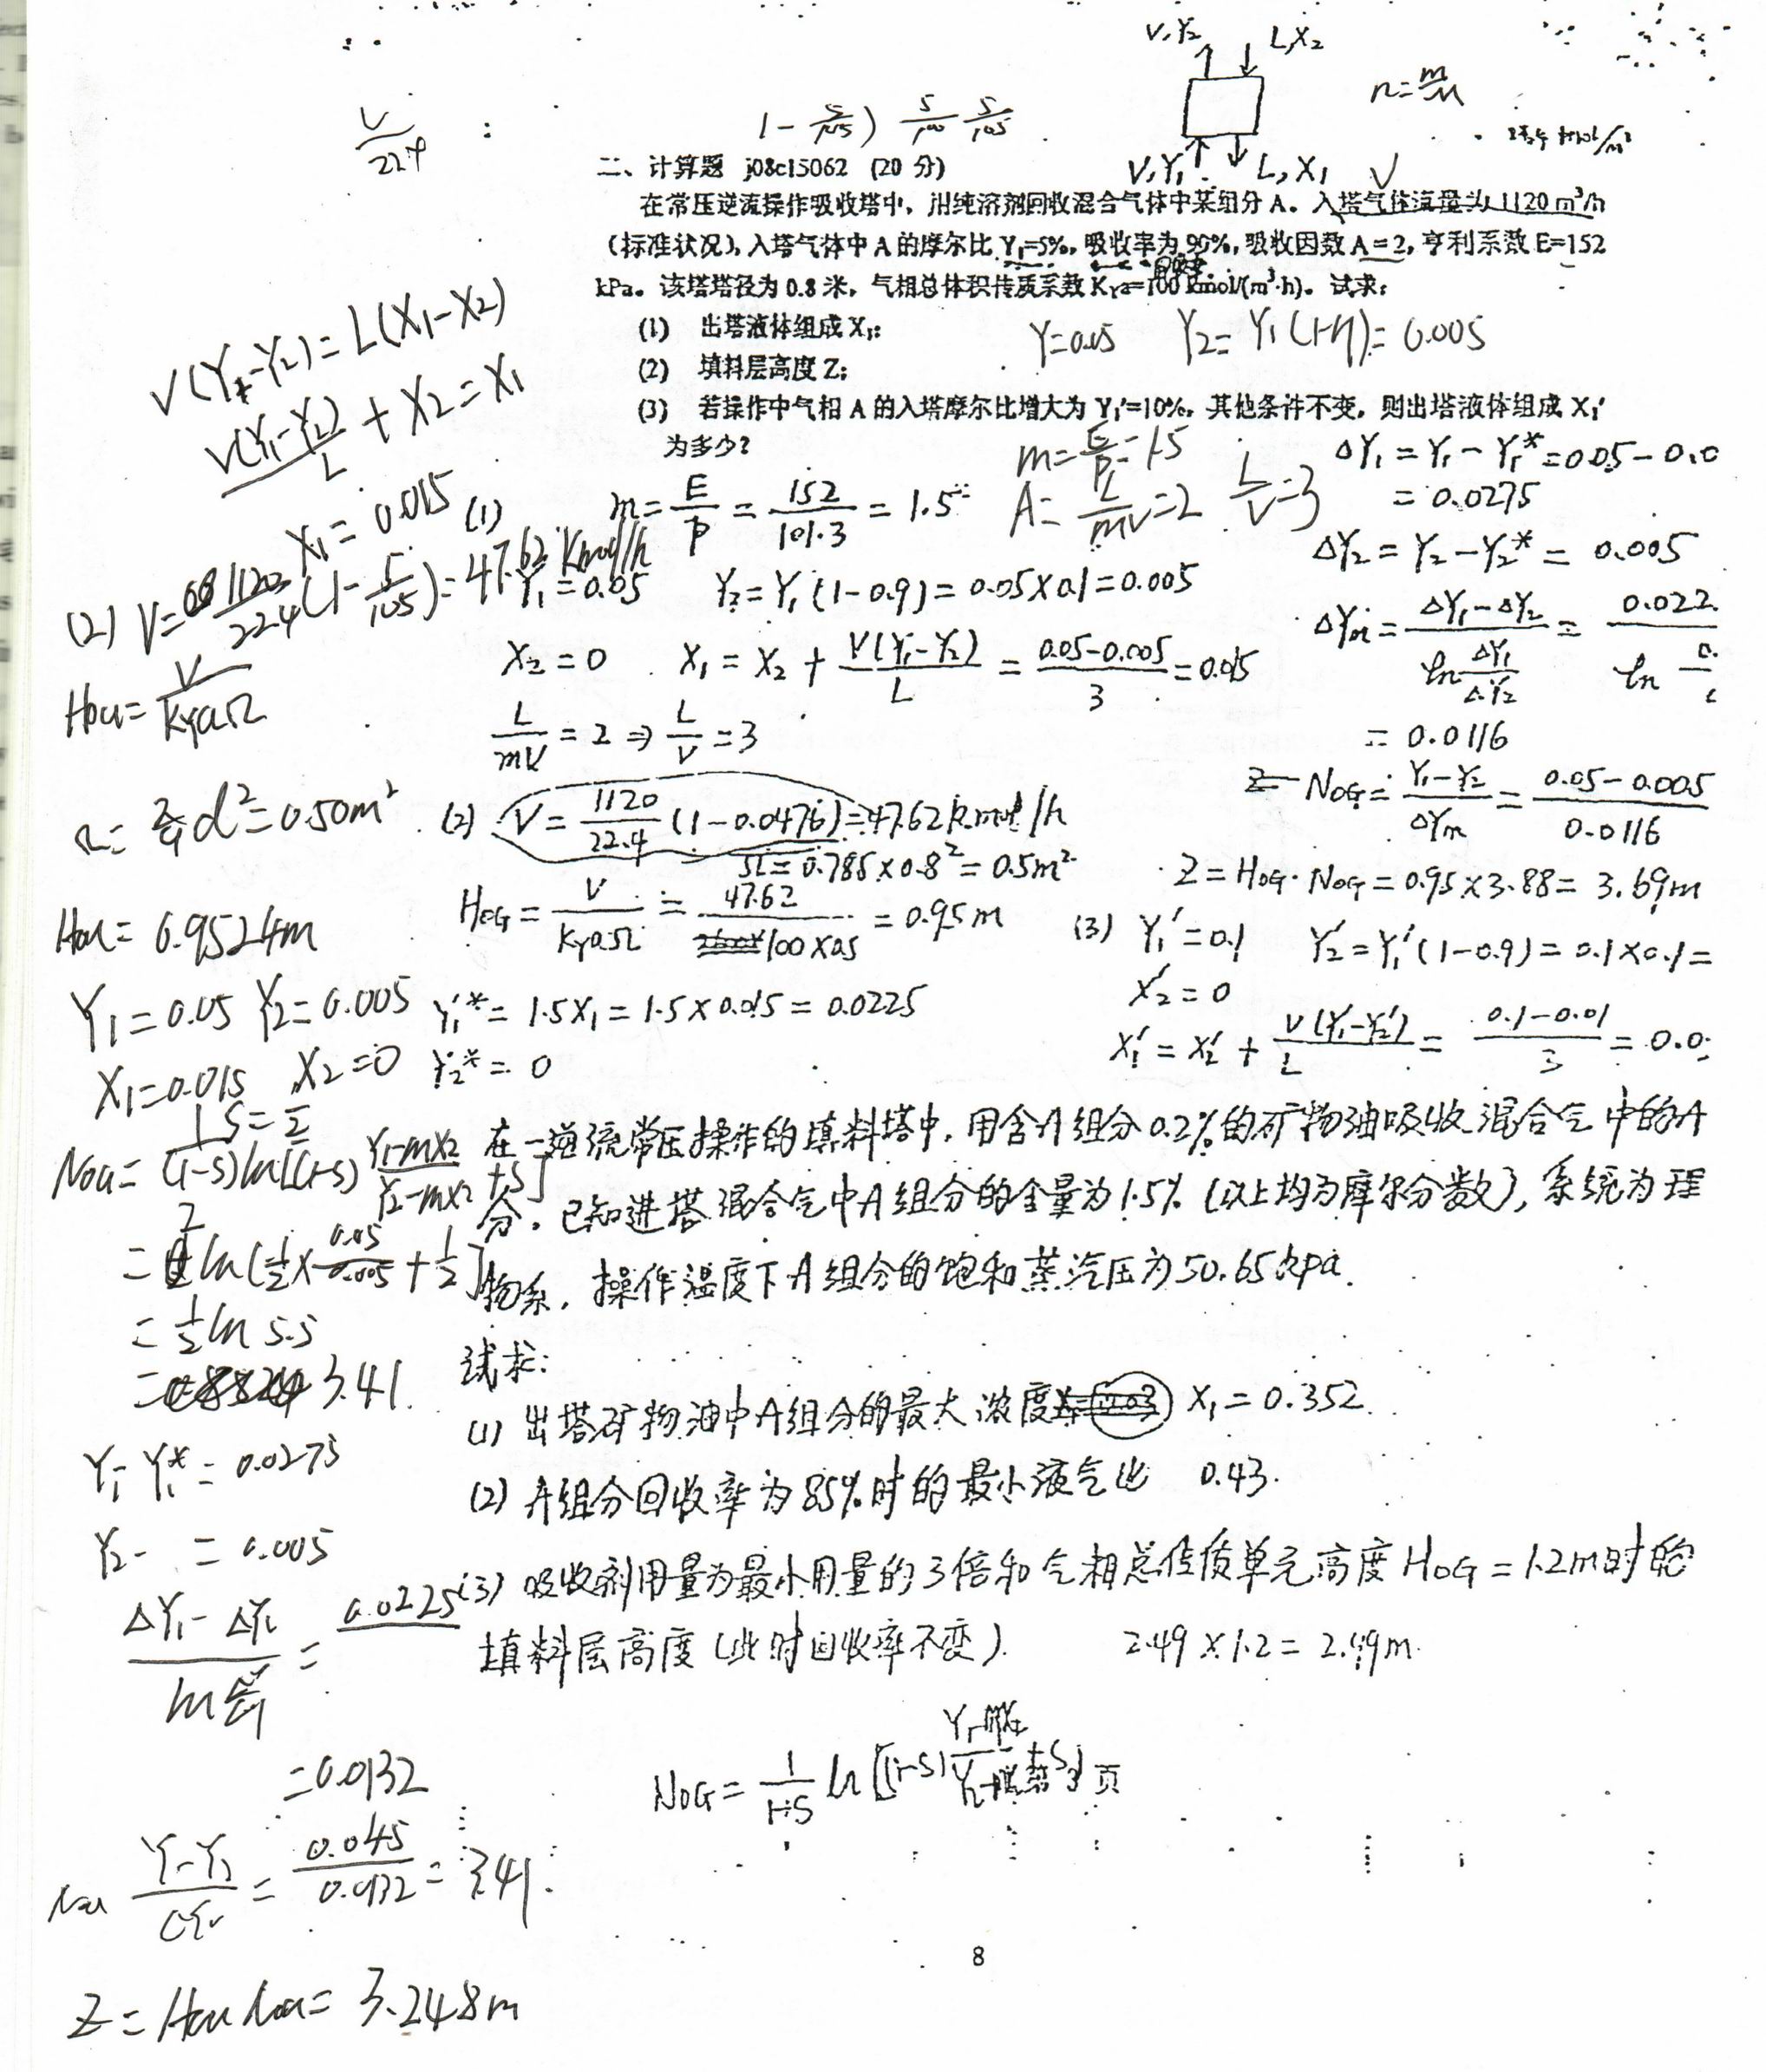 V,Y₂
L,X₂
n=m/M
V/22.4
1-5/105) 5/100 5/105
V,Y₁
L,X₁
二、计算题 j08c15062 (20 分)
在常压逆流操作吸收塔中，用纯溶剂回收混合气体中某组分 A。入塔气体流量为 1120 m³/h
(标准状况)，入塔气体中 A 的摩尔比 Y₁=5%，吸收率为 90%，吸收因数 A=2，亨利系数 E=152
kPa。该塔塔径为 0.8 米，气相总体积传质系数 Kʏa=100 kmol/(m³·h)。试求：
(1) 出塔液体组成 X₁；
Y=0.05 Y₂=Y₁(1-η)=0.005
(2) 填料层高度 Z；
(3) 若操作中气相 A 的入塔摩尔比增大为 Y₁′=10%，其他条件不变，则出塔液体组成 X₁′
为多少？
V(Y₁-Y₂)=L(X₁-X₂)
V(Y₁-Y₂)/L + X₂ = X₁
X₁=0.015
(2) V=1120/22.4(1-5/105)=47.62 Kmol/h
HOG=V/KYaΩ
Ω=π/4 d²=0.50m²
HOG=0.9524m
Y₁=0.05 Y₂=0.005
X₁=0.015 X₂=0
S=1/2
NOG=1/(1-S) ln[(1-S) Y₁-mX₂/Y₂-mX₂ +S]
=2 ln(1/2×0.05/0.005+1/2]
=1/2 ln 5.5
=3.41
Y₁-Y₁*=0.0275
Y₂- =0.005
ΔY₁-ΔY₂/ln =0.0225
=0.0132
Y₁-Y₂ =0.045/0.0132=3.41
Z=HOG NOG=3.248m
m=E/P=1.5
A=L/mV=2 L/V=3
(1) m=E/P=152/101.3=1.5
Y₁=0.05 Y₂=Y₁(1-0.9)=0.05×0.1=0.005
X₂=0 X₁=X₂+V(Y₁-Y₂)/L=0.05-0.005/3=0.015
L/mV=2⇒L/V=3
(2) V=1120/22.4(1-0.0476)=47.62 kmol/h
Ω=0.785×0.8²=0.5m²
HOG=V/KYaΩ=47.62/100×0.5=0.95m
Y₁*=1.5X₁=1.5×0.015=0.0225
Y₂*=0
ΔY₁=Y₁-Y₁*=0.05-0.0
=0.0275
ΔY₂=Y₂-Y₂*=0.005
ΔYm=ΔY₁-ΔY₂/ln ΔY₁/ΔY₂=0.022/ln
=0.0116
NOG=Y₁-Y₂/ΔYm=0.05-0.005/0.0116
Z=HOG·NOG=0.95×3.88=3.69m
(3) Y₁′=0.1 Y₂′=Y₁′(1-0.9)=0.1×0.1=
X₂′=0
X₁′=X₂′+V(Y₁′-Y₂′)/L=0.1-0.01/3=0.0
在一逆流常压操作的填料塔中，用含A组分0.2%的矿物油吸收混合气中的A
分。已知进塔混合气中A组分的含量为1.5%（以上均为摩尔分数），系统为理
物系，操作温度下A组分的饱和蒸汽压为50.65kpa.
试求：
(1) 出塔矿物油中A组分的最大浓度 X₁=0.352
(2) A组分回收率为85%时的最小液气比 0.43.
(3) 吸收剂用量为最小用量的3倍和气相总传质单元高度HOG=1.2m时的
填料层高度（此时回收率不变） 2.49×1.2=2.99m
NOG=1/1-S ln[(1-S) +S] 页
8